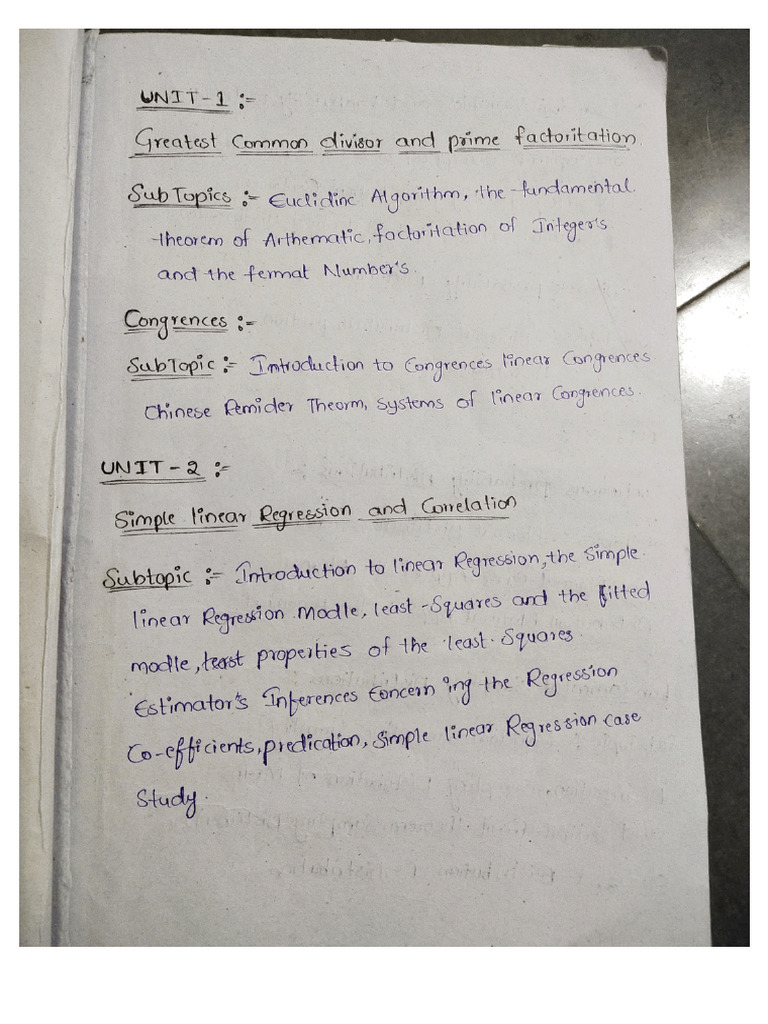 UNIT-1 :-
Greatest Common divisor and prime factoritation.
SubTopics :- Euclidinc Algorithm, the fundamental
theorem of Arthematic, factoritation of Integer's
and the fermat Number's.
Congrences :-
SubTopic :- Introduction to Congrences linear Congrences
Chinese Remider Theorm, systems of linear Congrences.
UNIT-2 :-
Simple linear Regression and Correlation
Subtopic :- Introduction to linear Regression, the simple
linear Regression modle, least-Squares and the fitted
modle, properties of the least-Squares
Estimator's Inferences Concern ing the Regression
Co-efficients, predication, simple linear Regression case
Study.